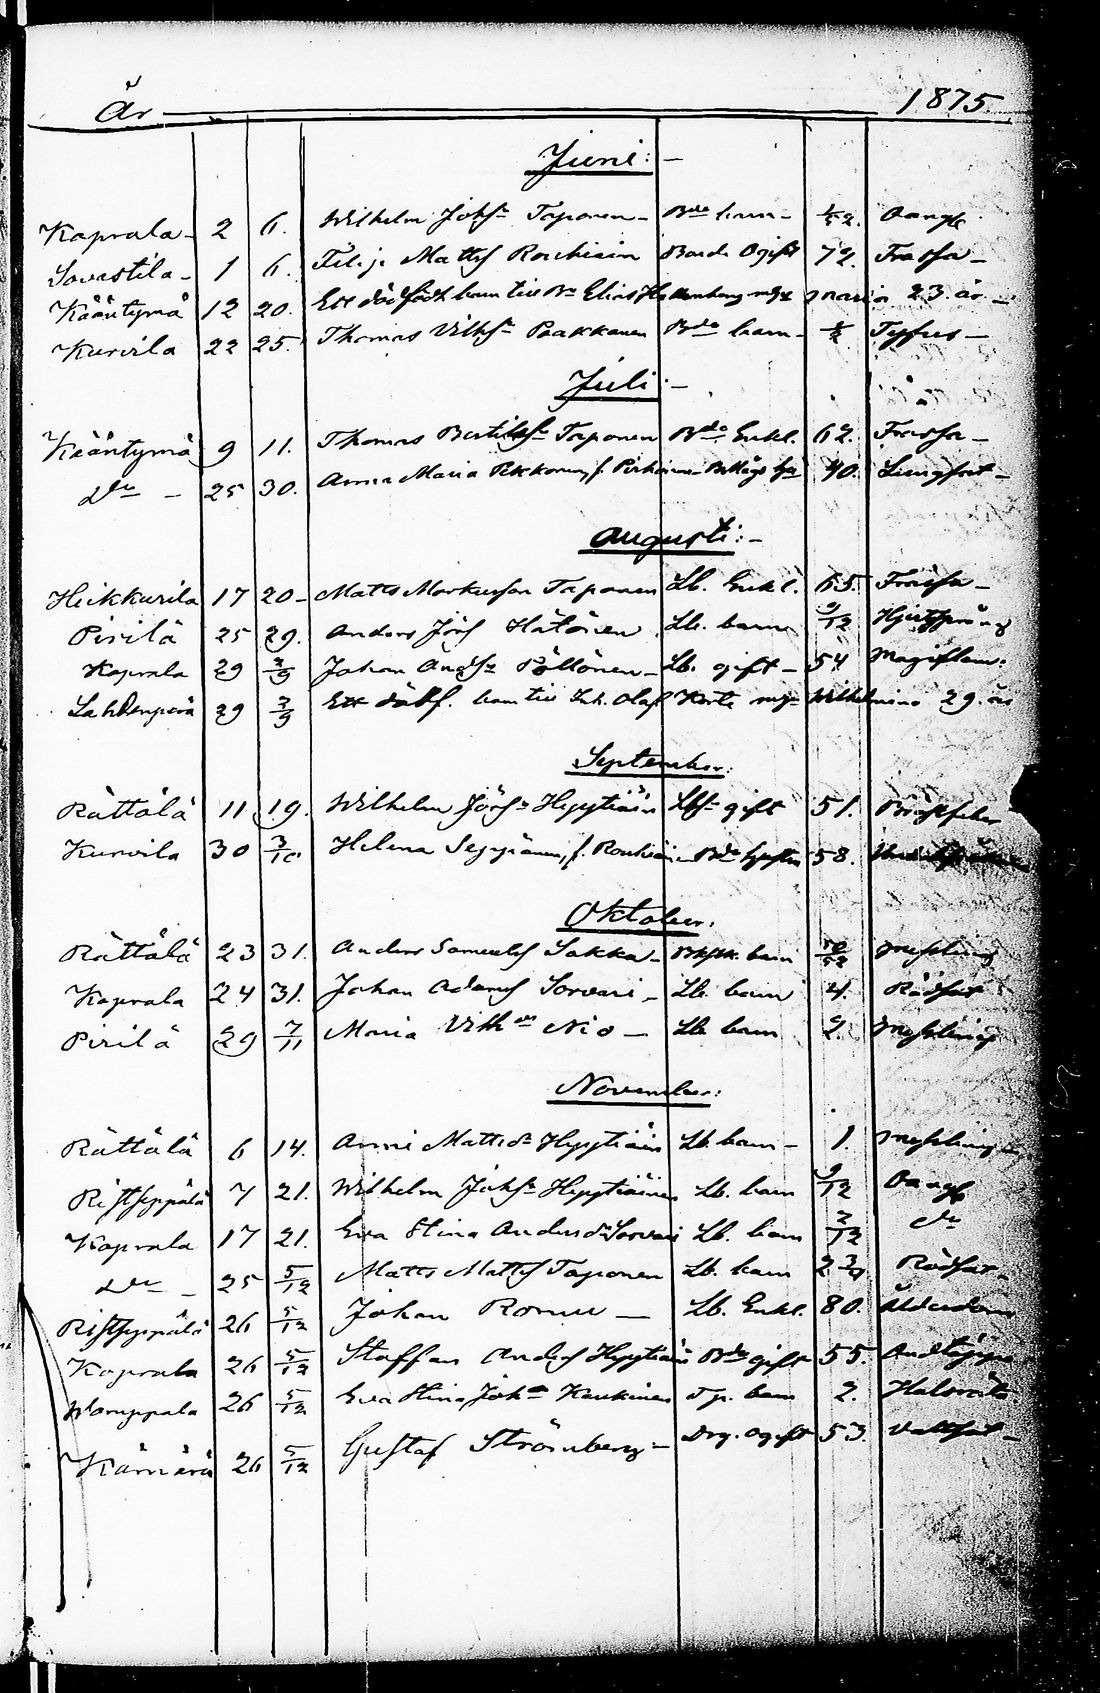 År 1875.
Juni:—
Kaprala 2 6. Wilhelm Johsn Taponen — Bde barn — 1/52. Oangf
Sovastila 1 6. Filip Matts Ronkiain Bonde Ogift 72. Frossa —
Kääntymä 12 20. Ett dödfödt barn till Bn Elias Maria 23. år —
Kurvila 22 25. Thomas Vilhsn Paakkanen Bde barn — 1/2 Tyfus —
Juli —
Kääntymä 9 11. Thomas Bertilsn Taponen Bde Enkl. 62. Frossa —
do — 25 30. Anna Maria Pekkonen, f. 40. Lungsot —
Augusti: —
Heikkurila 17 20 — Matts Markusson Taponen Lb. Enkl. 65. Frossa —
Pirilä 25 29. Anders Jörs Hätönen Lb. barn 9/12
Kaprala 29 Johan Andsn Pöllönen — Lb. gift — 54
Lahdenperä 29 Ett dödf. barn till Inh. Olaf Korte Wilhelmina 29. år
September:
Rättälä 11 19. Wilhelm Jörsn Hyytiäin Lbsn gift 51. Bröstfeber
Kurvila 30 3/10 Helena Seppänen, f. Ronkiain — Bde hustru 58.
Oktober:
Rättälä 23 31. Anders Samuels Sakka — barn Messling
Kaprala 24 31. Johan Adams Sorvari — Lb. barn 4. Rödsot
Pirilä 29 7/11 Maria Vilh dr Nio — Lb barn 2. Messling
November:
Rättälä 6 14. Anni Matts dr Hyytiäin Lb barn — 1. Messling
Ristseppälä 7 21. Wilhelm Johsn Hyytiäinen Lb. barn 9/12 Oangf
Kaprala 17 21. Eva Stina Anders dr Sorvari Lb. barn 2/12 do
do — 25 5/12 Matts Matts Taponen Lb. barn 2 3/4 Rödsot —
Ristseppälä 26 5/12 Johan Romu — Lb. Enkl. 80. Ålderdom
Kaprala 26 5/12 Staffan Anders Hyytiäin Bde gift 55. Andtäppa
Wamppala 26 5/12 Eva Stina Joh dr Kaukinen barn 2. Halsröta
Kämärä 26 5/12 Gustaf Strömberg — Drg. ogift 53. Vattsot —